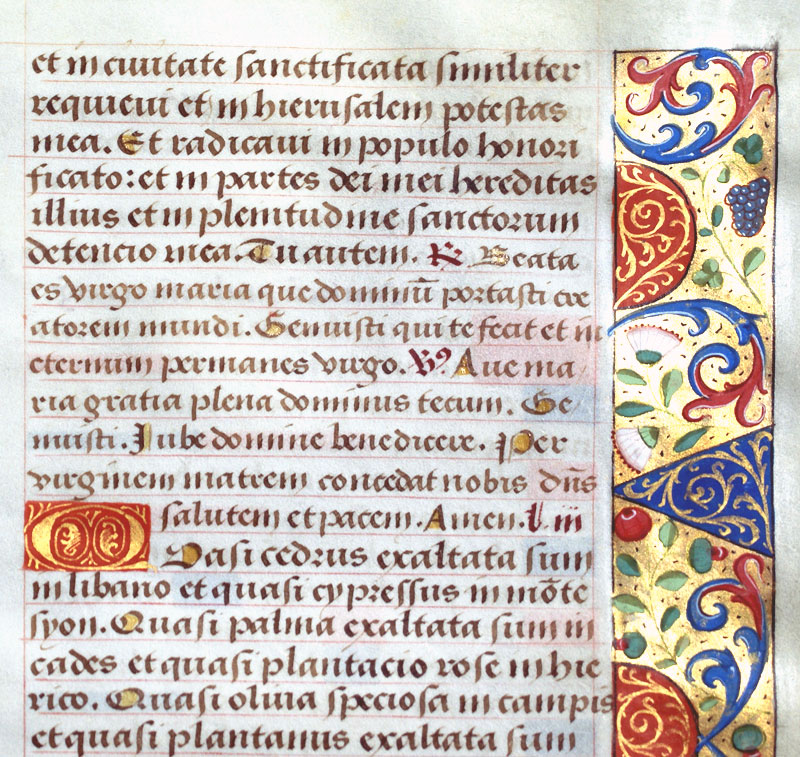 et in ciuitate sanctificata similiter
requieui et in hierusalem potestas
mea. Et radicaui in populo honori
ficato: et in partes dei mei hereditas
illius et in plenitudine sanctorum
detencio mea. Tu autem. R Beata
es virgo maria que dominū portasti cre
atorem mundi. Genuisti qui te fecit et in
eternum permanes virgo. V9 Aue ma
ria gratia plena dominus tecum. Ge
nuisti. Iube domine benedicere. Per
virginem matrem concedat nobis dn̄s
salutem et pacem. Amen. L iii
Qasi cedrus exaltata sum
in libano et quasi cypressus in mōte
syon. Quasi palma exaltata sum in
cades et quasi plantacio rose in hie
rico. Quasi oliua speciosa in campis
et quasi plantanus exaltata sum